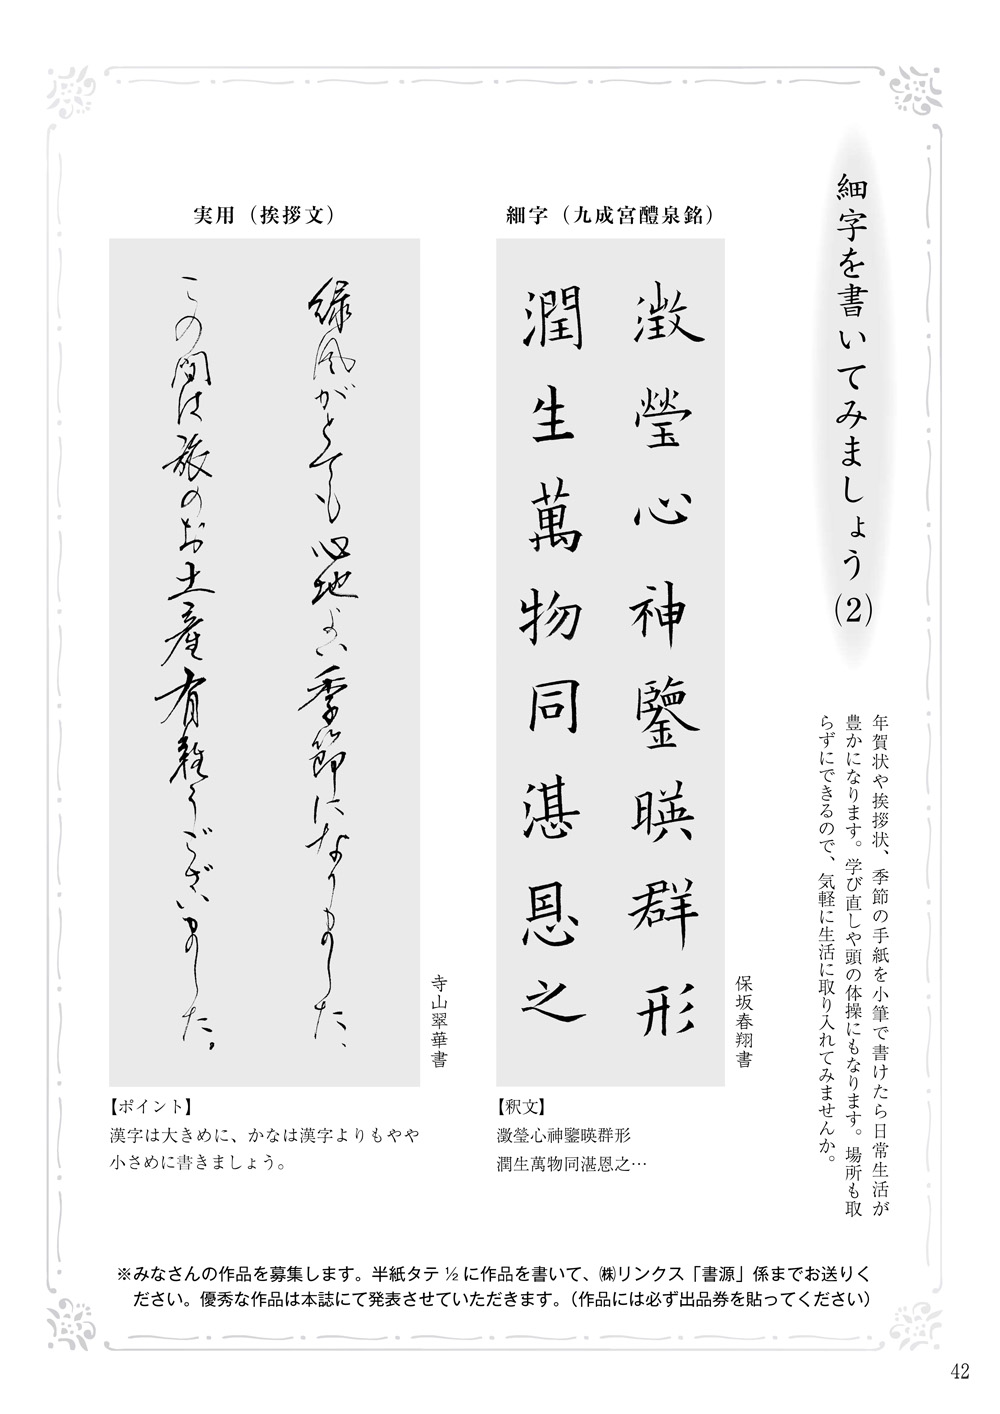 細字を書いてみましょう(2)
年賀状や挨拶状、季節の手紙を小筆で書けたら日常生活が
豊かになります。学び直しや頭の体操にもなります。場所も取
らずにできるので、気軽に生活に取り入れてみませんか。
細字（九成宮醴泉銘）
澂瑩心神鑒暎群形
潤生萬物同湛恩之
保坂春翔書
【釈文】
澂瑩心神鑒暎群形
潤生萬物同湛恩之…
実用（挨拶文）
緑風がとても心地よい季節になりました、
この間は旅のお土産有難うございました。
寺山翠華書
【ポイント】
漢字は大きめに、かなは漢字よりもやや
小さめに書きましょう。
※みなさんの作品を募集します。半紙タテ½に作品を書いて、㈱リンクス「書源」係までお送りく
ださい。優秀な作品は本誌にて発表させていただきます。（作品には必ず出品券を貼ってください）
42